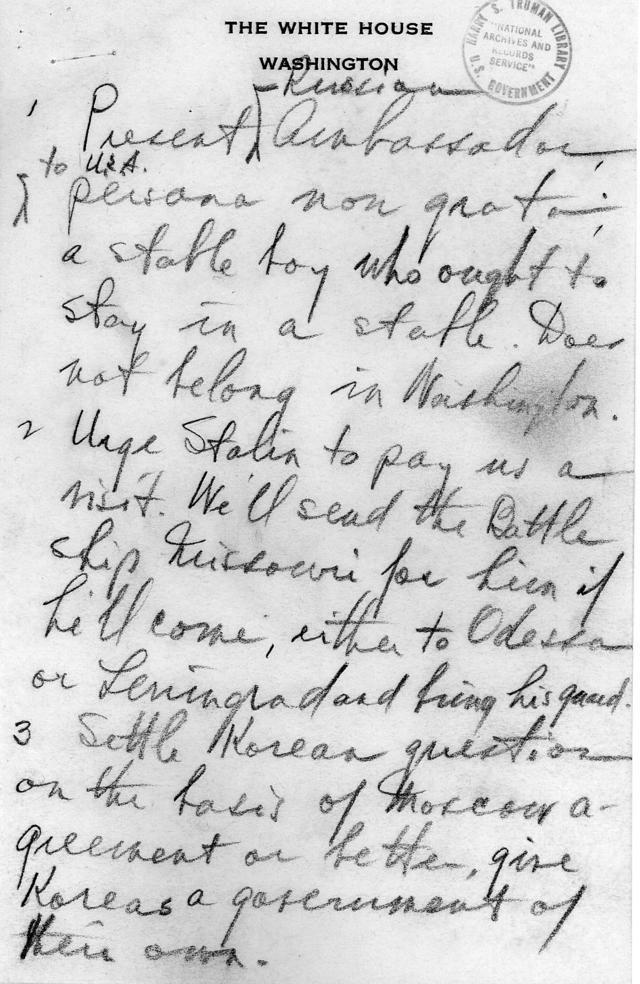 THE WHITE HOUSE
WASHINGTON
HARRY S. TRUMAN LIBRARY
"NATIONAL
ARCHIVES AND
RECORDS
SERVICE"
U.S. GOVERNMENT
Russian
1 Present Ambassador,
to U.S.A.
persona non grata;
a stable boy who ought to
stay in a stable. Does
not belong in Washington.
2 Urge Stalin to pay us a
visit. We'll send the Battle
ship Missouri for him if
he'll come, either to Odessa
or Leningrad and bring his guard.
3 Settle Korean question
on the basis of Moscow a-
greement or better, give
Koreas a government of
their own.